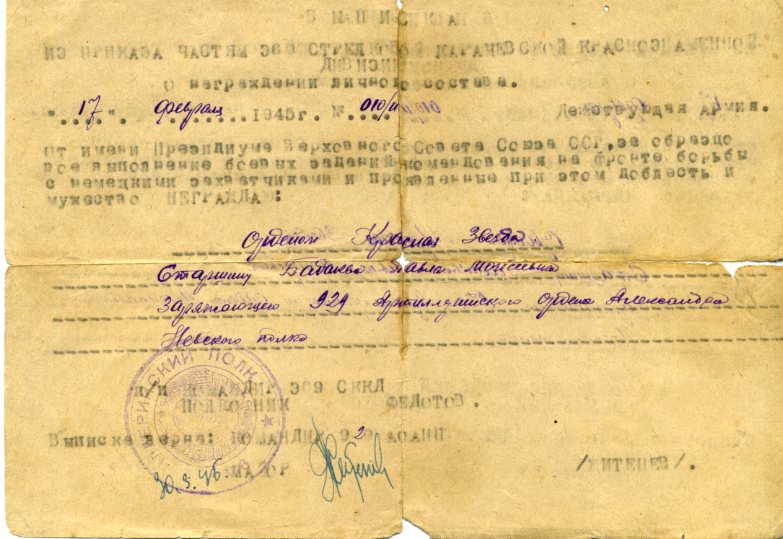 ИЗ ПРИКАЗА ЧАСТЯМ СТРЕЛКОВОЙ КАРАЧЕВСКОЙ КРАСНОЗНАМЕННОЙ
ДИВИЗИИ
О награждении личного состава.
"17". февраля 1945г. № 010/н Действующая Армия.
От имени Президиума Верховного Совета Союза ССР, за образцо
вое выполнение боевых заданий командования на фронте борьбы
с немецкими захватчиками и проявленные при этом доблесть и
мужество НЕГРАЖДАЮ:
Орденом Красная Звезда
Старшину Павла
Заряжающего 929 Артиллерийского Ордена Александра
Невского полка
КОМАНДИР
ФЕДОТОВ.
Выписка верна: КОМАНДИР
МАЙОР /ЖИТЕНЕВ/.
ПОЛК